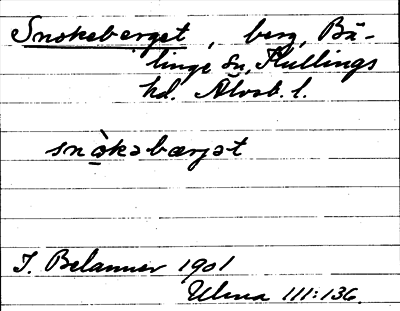 Snokeberget, berg, Bä-
linge sn, Kullings
hd. Älvsb. l.
snòkəbærjət
I. Belanner 1901
Ulma 111:136.